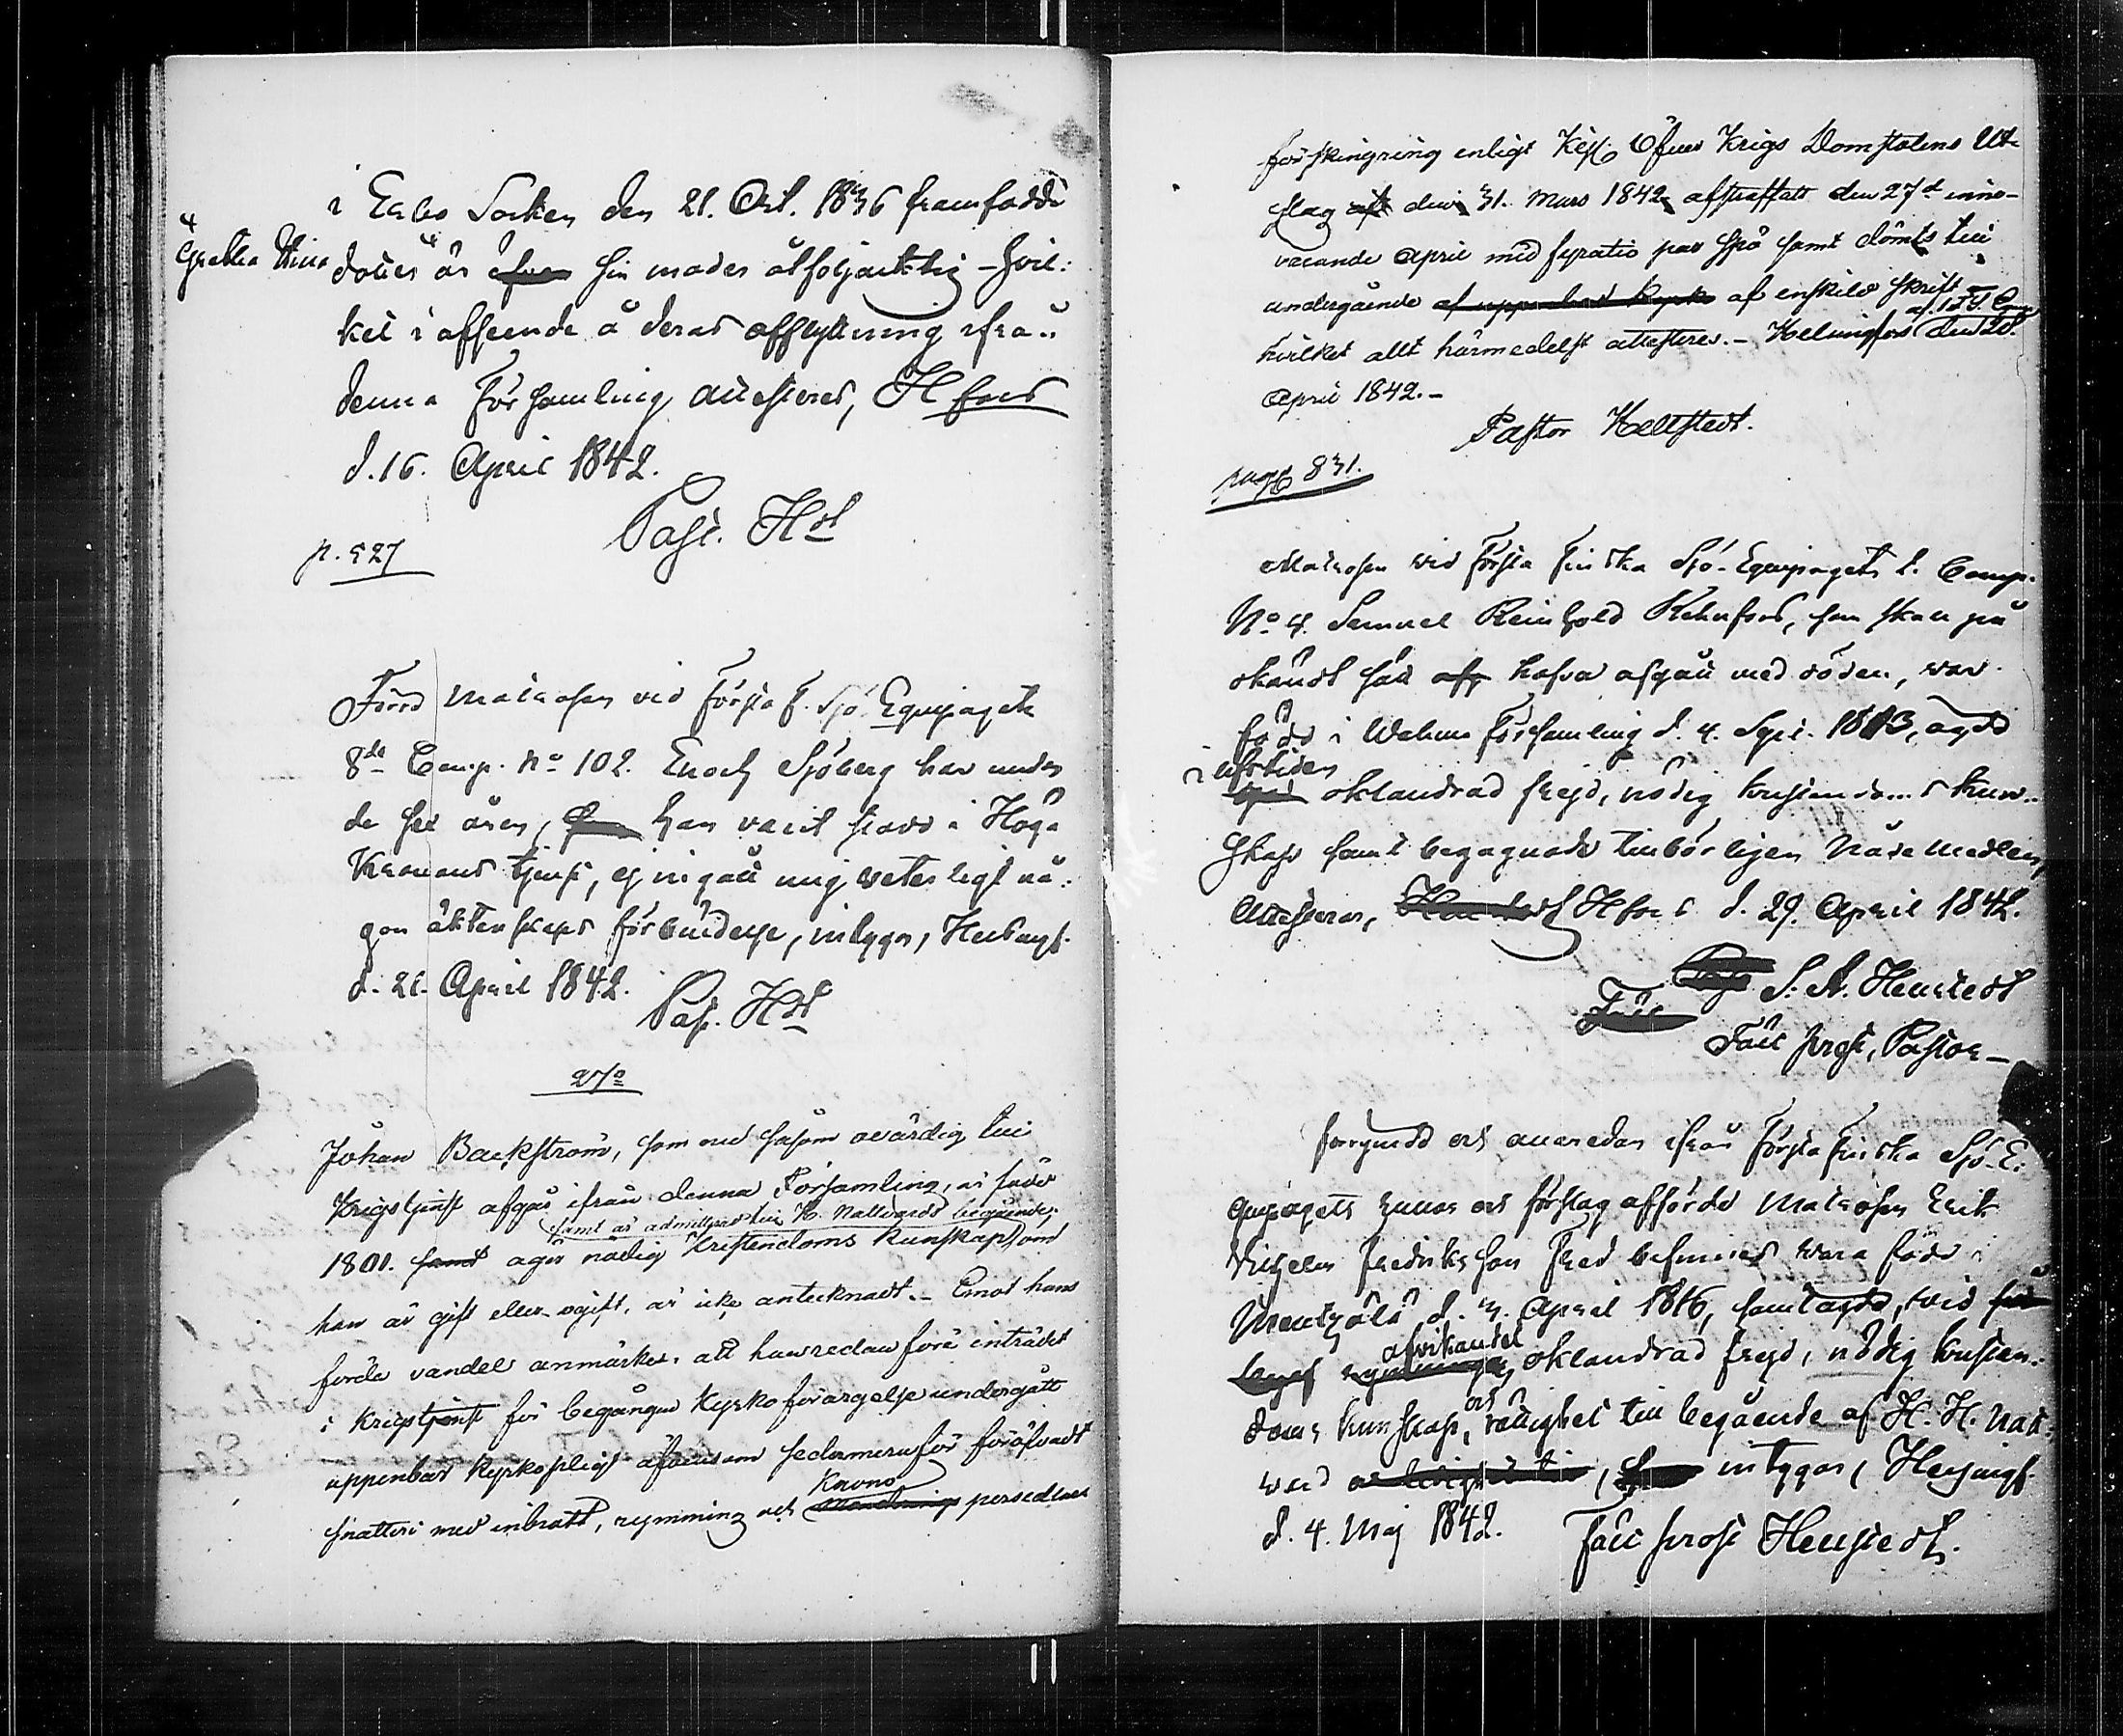 i Esbo Socken den 21. Oct. 1836 framfödda
Gretha Stina
dotter är sin moder åtföljaktlig – hvil-
ket i afseende å deras afflyttning ifrån
denna Församling attesteras, Hfors
d. 16. April 1842.
Past. Hdt
p. 527
Förre Matrosen vid Första F. Sjö-Equipagets
8de Comp. No 102. Enoch Sjöberg har under
de sex åren, han varit stadd i Höga
Kronans tjenst, ej ingått mig veterligt nå-
gon äktenskaps förbindelse, intygas, Helsingf.
d. 21. April 1842.
Past. Hdt
27o
Johan Backström, som nu såsom ovärdig till
Krigstjenst afgår ifrån denna Församling, är född
samt är admitterad till H. Nattvards begående;
1801. samt äger nödig Kristendoms kunskap, om
han är gift eller ogift, är icke antecknadt. – Emot hans
förda vandel anmärkes, att han redan före inträdet
i Krigstjenst för begången Kyrkoförargelse undergått
uppenbar kyrkopligt äfvensom sedermera för föröfvadt
Krono
snatteri med inbrott, rymning och persedlars
förskingring enligt Kejs. Öfver Krigs Domstolens Ut-
slag den 31. Mars 1842 afstraffats den 27de inne-
varande April med fyratio par spö samt dömts till
undergående af uppenbar kyrko af enskild skrift
hvilket allt härmedelst attesteras. – Helsingfors den
April 1842. –
Pastor Hellstedt.
pag. 831.
Matrosen vid Första Finska Sjö-Equipagets 1. Comp.
No 4. Samuel Reinhold Rehnfors, som skall på
okändt sätt hafva afgått med döden, var
född i Wehmo Församling d. 4. Sept. 1813, ägde
i lifstiden
oklandrad frejd, nödig kristendoms kun-
skap samt begagnade tillbörligen Nådemedlen,
Attesteras, Hfors d. 29. April 1842.
S. A. Hellstedt
Fält prost, Pastor –
Förrymde och annoredan ifrån Första Finska Sjö-E-
quipagets rullor och förslag afförde Matrosen Erik
Wilhelm Fredriksson Fred befinnes vara född i
Mentzälä d. 3. April 1816, samt ägde, vid
afvikandet
oklandrad frejd, nödig kristen-
och
doms kunskap, rättighet till begående af H. H. Natt-
vard intygas, Helsingf.
d. 4. Maj 1842.
Fält prost Hellstedt.